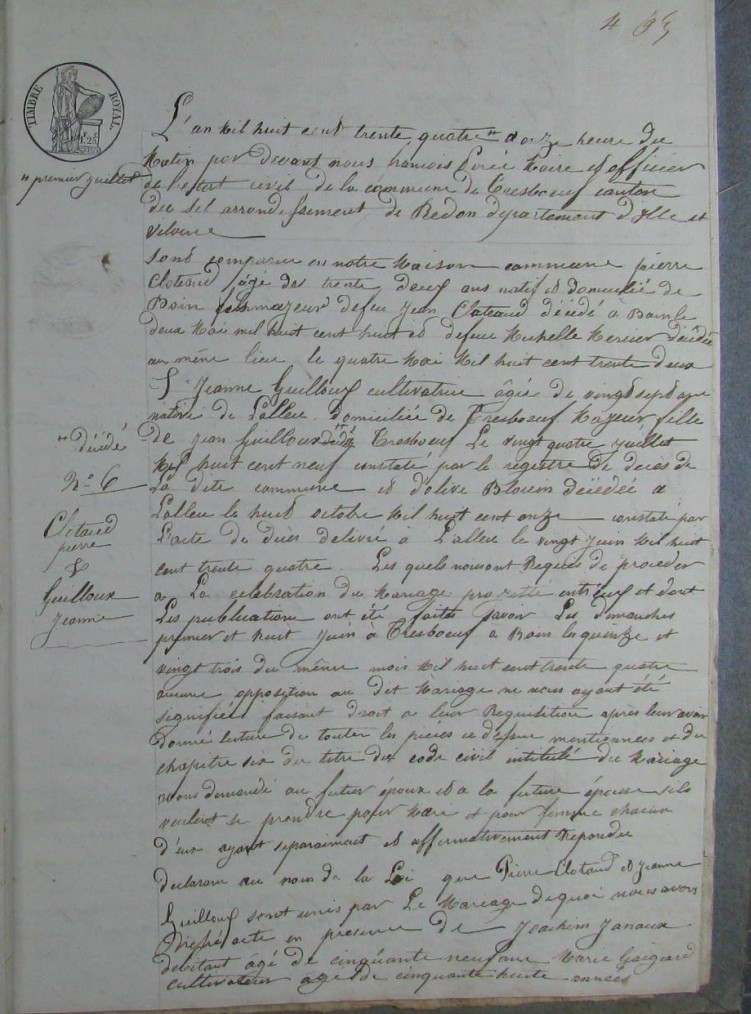 4
TIMBRE ROYAL
L'an Mil huit cent trente quatre " a onze heure du
Matin par devant nous francois Maire et officier
" premier juillet
de l'etat civil de la commune de Tresboeuf canton
du sel arrondissement de Redon departement d'Ille et
Vilaine
Sont comparu en notre Maison commune pierre
Cloteaud âgé de trente deux ans natif et domicilié de
Bain fils majeur defeu Jean Cloteaud décédé à Bain le
deux Mai mil huit cent huit et defeue Michelle Mercier décédée
au même lieu le quatre Mai Mil huit cent trente deux
& Jeanne Guilloux cultivatrice âgée de vingt sept ans
native de Lalleu domiciliée de Tresboeuf Majeur fille
" décédé
de Jean Guilloux Tresboeuf Le vingt quatre juillet
Mil huit cent neuf constaté par le registre de décès de
No 6
La dite commune et d'olive Blouin décédée a
Lalleu le huit octobre Mil huit cent onze constaté par
Clotaud
pierre
&
Guilloux
Jeanne
L'acte de décès delivré à Lalleu le vingt Juin Mil huit
cent trente quatre. Les quels nous ont Requis de proceder
a La celebration du Mariage projetté entr'eux et dont
Les publications ont été faites savoir Les dimanches
premier et huit Juin à Tresboeuf a Bain les quinze et
vingt trois du même mois Mil huit cent trente quatre
aucune opposition au dit Mariage ne nous ayant été
signifiée faisant droit a leur Requisition apres leur avoir
donné lecture de toutes les pièces ci dessus mentionnées et du
chapitre six du titre du code civil intitulé du Mariage
avons demandé au futur époux et a la future épouse s'ils
veulent se prendre pour Mari et pour femme chacun
d'eux ayant separaiment et affirmativement Repondu
declarons au nom de la Loi que Pierre Clotaud et Jeanne
Guilloux sont unis par Le Mariage de quoi nous avons
Dressé acte en presence de Joachim Janaux
debitant âgé de cinquante neuf ans Marie
cultivateur âgé de cinquante huite années